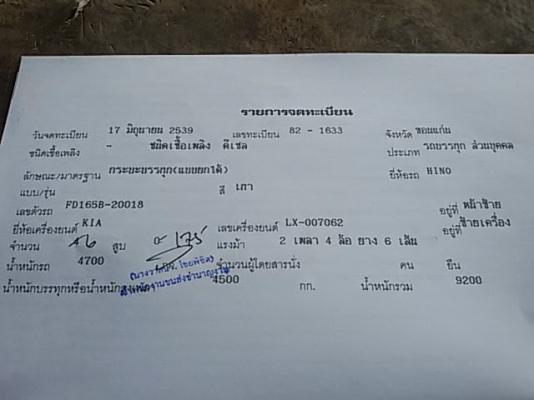 รายการจดทะเบียน
วันจดทะเบียน 17 มิถุนายน 2539 เลขทะเบียน 82 - 1633 จังหวัด ขอนแก่น
ชนิดเชื้อเพลิง - ชนิดเชื้อเพลิง ดีเซล ประเภท รถบรรทุก ส่วนบุคคล
ลักษณะ/มาตรฐาน กระบะบรรทุก(แบบยกได้) ยี่ห้อรถ HINO
แบบ/รุ่น สี เทา
เลขตัวรถ FD165B-20018 อยู่ที่ หน้าซ้าย
ยี่ห้อเครื่องยนต์ KIA เลขเครื่องยนต์ LX-007062 อยู่ที่ ซ้ายเครื่อง
จำนวน สูบ 175 แรงม้า 2 เพลา 4 ล้อ ยาง 6 เส้น
น้ำหนักรถ 4700 จำนวนผู้โดยสารนั่ง คน ยืน
น้ำหนักบรรทุกหรือน้ำหนักลงเพลา 4500 กก. น้ำหนักรวม 9200